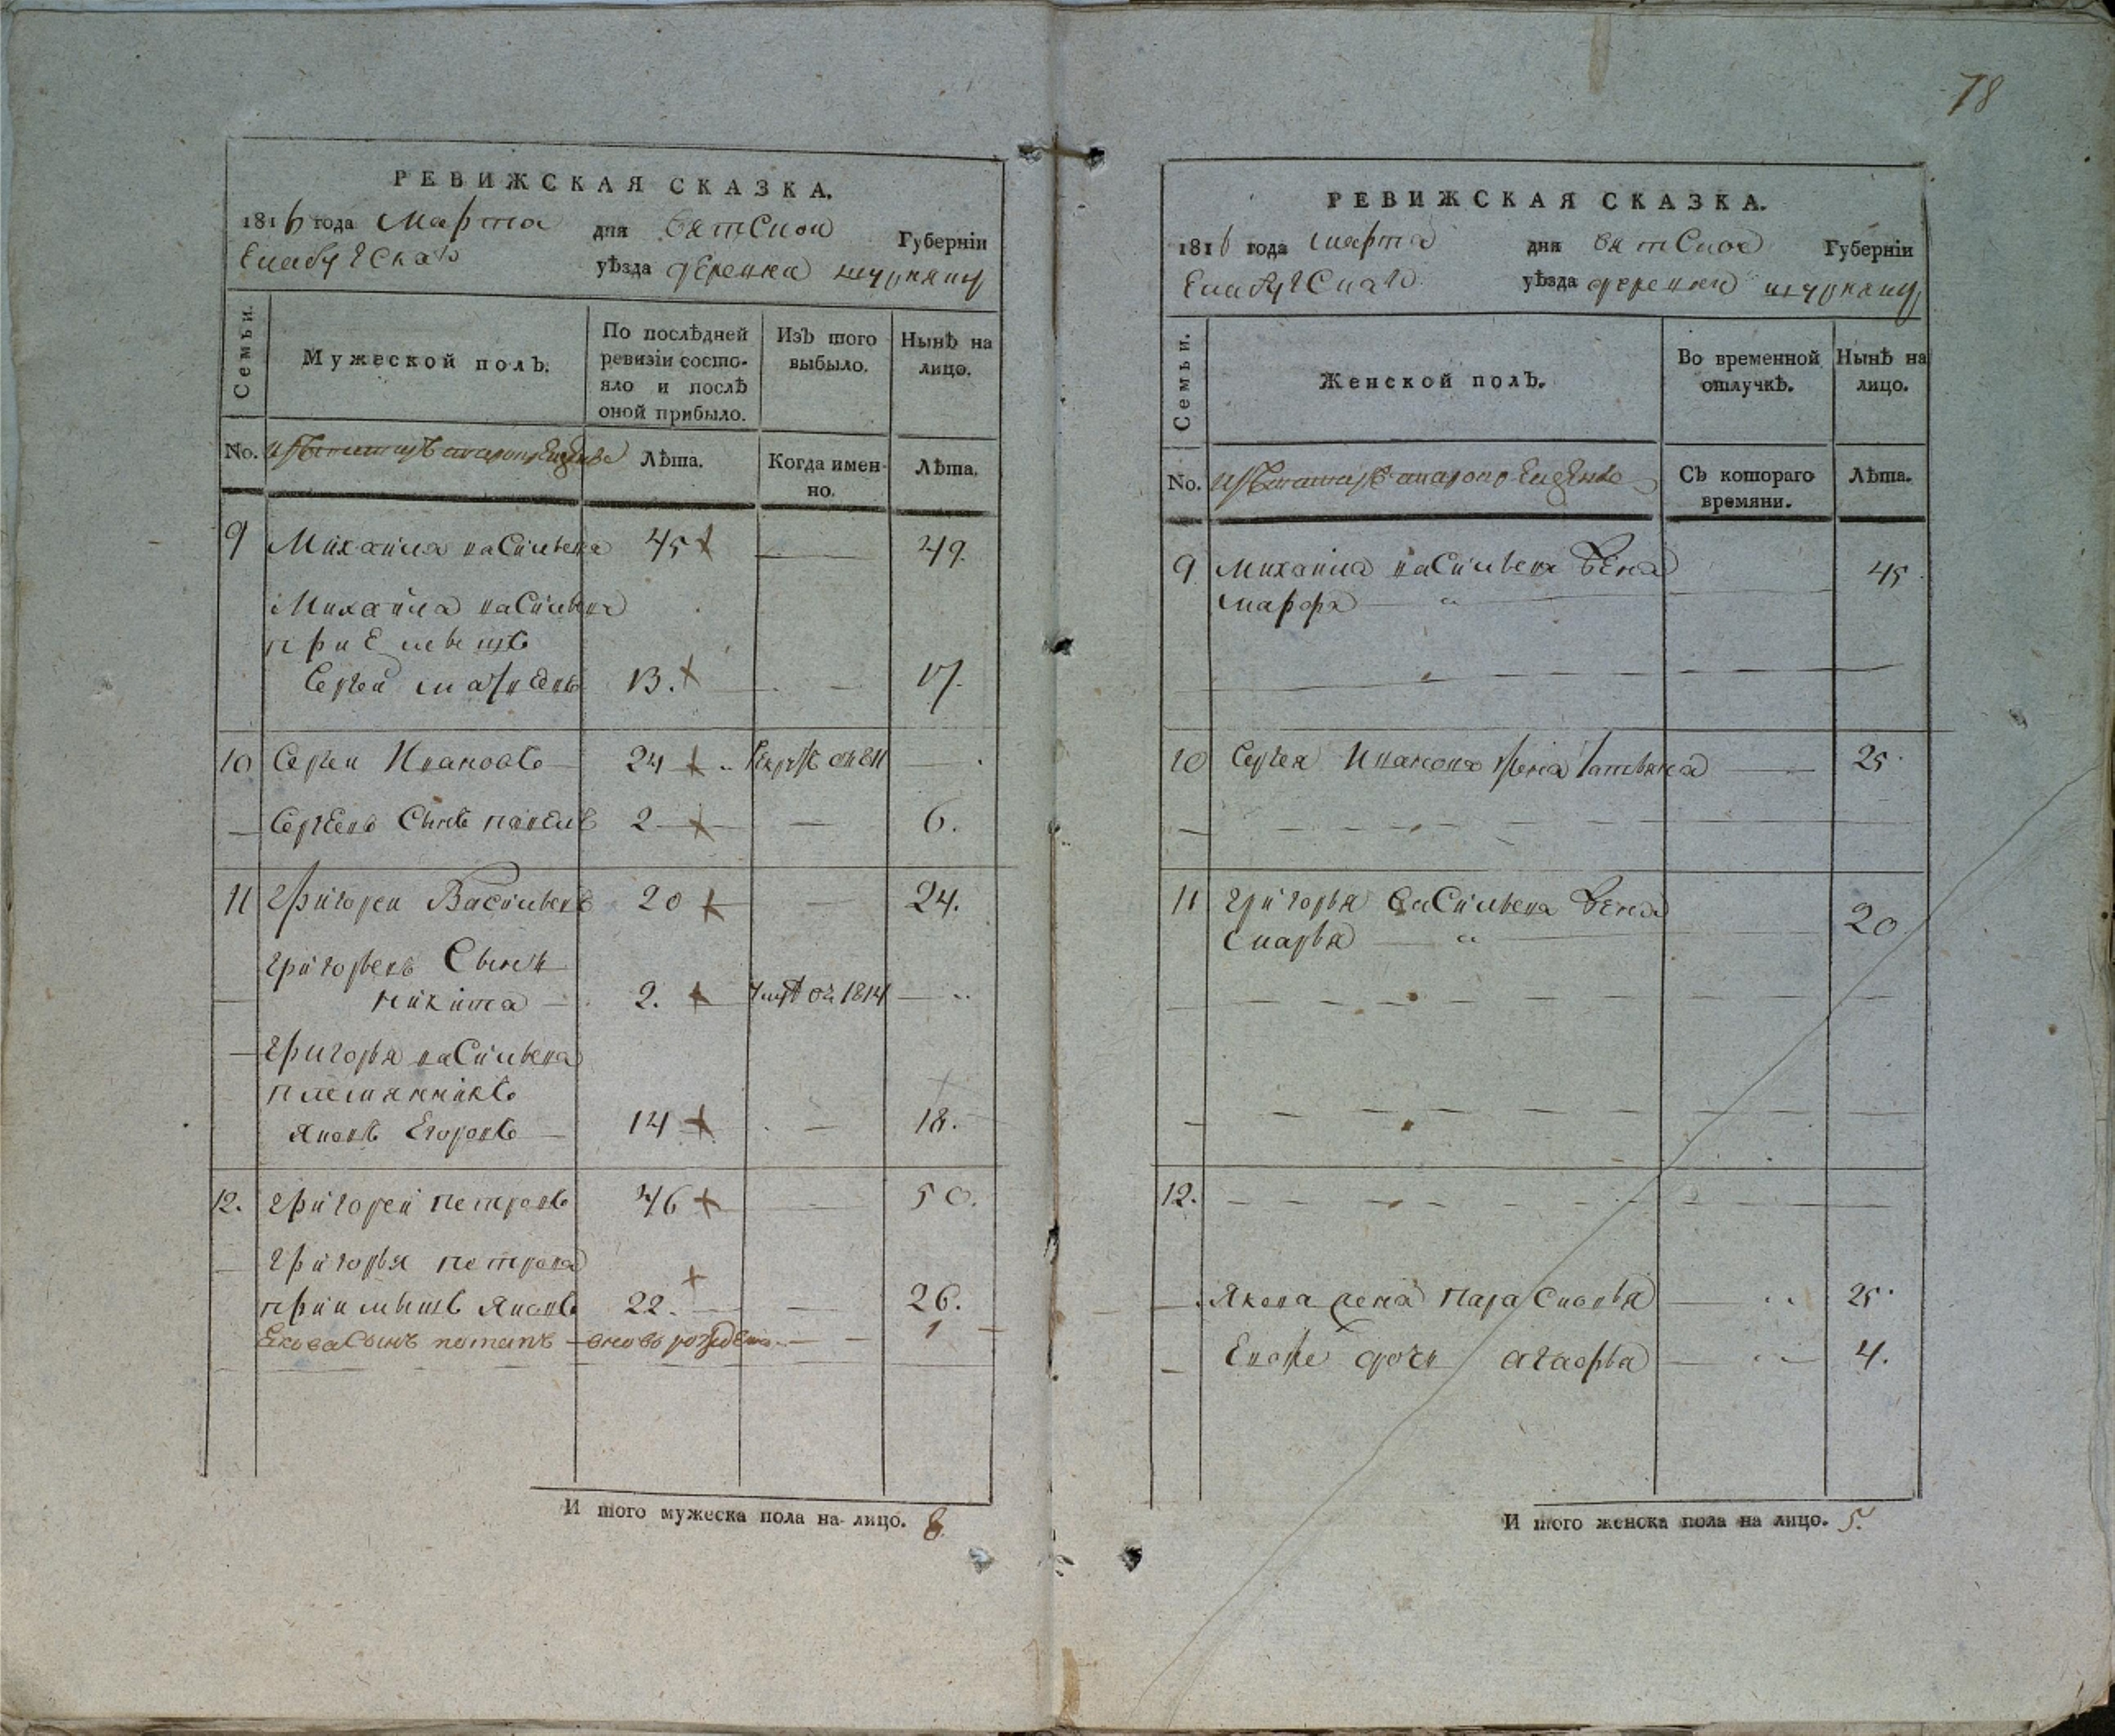 78
РЕВИЖСКАЯ СКАЗКА.
1816 года Марта дня вятской Губернїи
Елабугскаго уѣзда деревна
Семьи.
Мужеской полъ.
По послѣдней ревизїи состо-
яло и послѣ
оной прибыло.
Изъ того
выбыло.
Нынѣ на
лицо.
No. Лѣта. Когда имен-
но. Лѣта.
9 Михаила васильевъ 45 — 49.
Михаила васильева
приемышъ
Сергей 13. — 17.
10 Сергеи Ивановъ 24 —
Сергеевъ Сынъ павелъ 2 — 6.
11 Григореи Васильевъ 20 — 24.
Григорьевъ Сынъ
никита — 2. 1814 —
Григорья васильева
племянникъ
Яковъ Егоровъ — 14 — 18.
12. Григореи петровъ 46 — 50.
Григорья петрова
приимышъ Яковъ 22. — 26.
Екова Сынъ потапъ — вновь рожденъ — 1
И того мужеска пола на лицо. 8
РЕВИЖСКАЯ СКАЗКА.
1816 года марта дня вятской Губернїи
Елабугскаго уѣзда деревни
Семьи.
Женской полъ.
Во временной
отлучкѣ.
Нынѣ на
лицо.
No. Съ котораго
времяни. Лѣта.
9 Михаила васильева Жена 45
марфа
10 Сергея Иванова жена татьяна — 25
11 Григорья васильева Жена
марья 20
12.
Якова жена Парасковья — 25
дочь агафья — 4.
И того женска пола на лицо. 5.